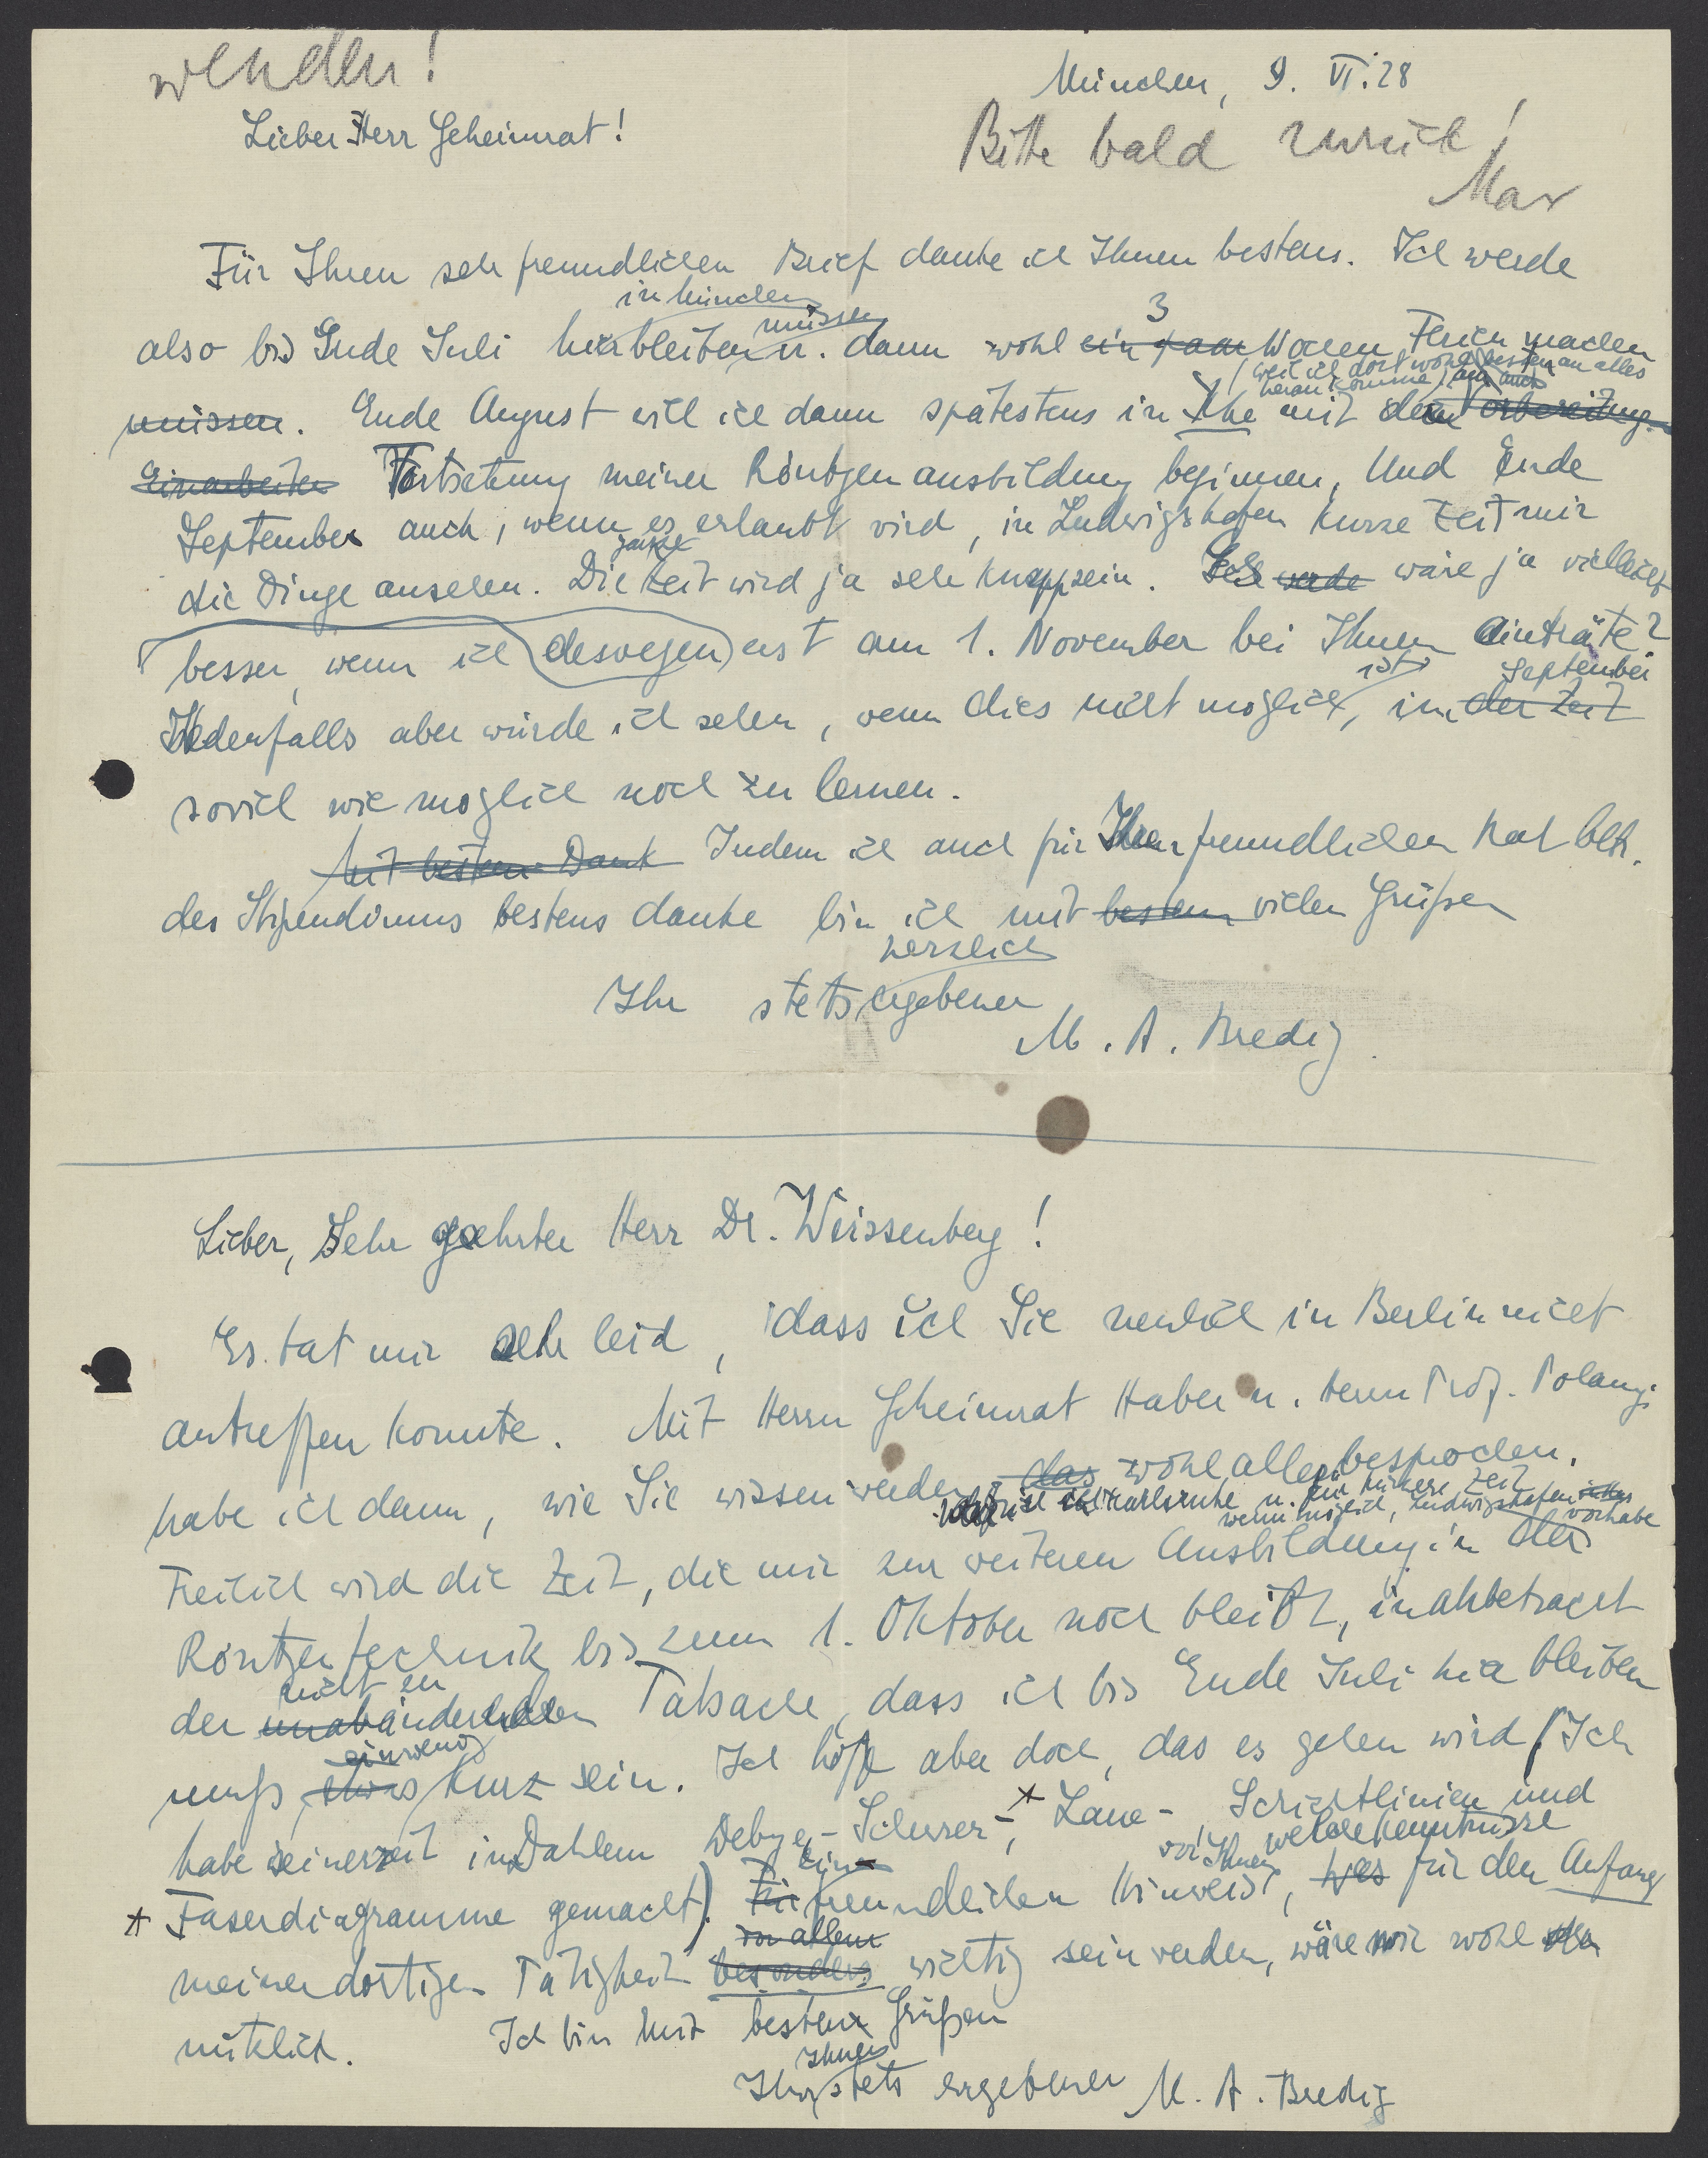 wenden!
München, 9. VI. 28
Lieber Herr Geheimrat!
Bitte bald zurück!
Max
Für Ihren sehr freundlichen Brief danke ich Ihnen bestens. Ich werde
in München müssen 3
also bis Ende Juli hierbleiben u. dann wohl ein paar Wochen Ferien machen
(weil ich dort wohl am besten an alles
heran komme)
müssen. Ende August will ich dann spätestens in Khe mit der Vorbereitung
Einarbeiten Fortsetzung meiner Röntgenausbildung beginnen, Und Ende
September auch, wenn es erlaubt wird, in Ludwigshafen kurze Zeit mir
ganze
die Dinge ansehen. Die Zeit wird ja sehr knapp sein. Ich werde wäre ja vielleicht
besser, wenn ich deswegen erst am 1. November bei Ihnen einträte?
ist September
Jedenfalls aber würde ich sehen, wenn dies nicht möglich, in der Zeit
soviel wie möglich noch zu lernen.
Mit bestem Dank Indem ich auch für Ihren freundlichen Rat betr.
des Stipendiums bestens danke bin ich mit bestem vielen Grüßen
herzlich
Ihr stets ergebener
M. A. Bredig.
Lieber, Sehr geehrter Herr Dr. Weissenberg!
Es tat mir sehr leid, dass ich Sie neulich in Berlin nicht
antreffen konnte. Mit Herrn Geheimrat Haber u. Herrn Prof. Polanyi
habe ich dann, wie Sie wissen werden, das wohl alles besprochen.
Karlsruhe u. für kürzere Zeit
wenn möglich, Ludwigshafen vorhabe
Freilich wird die Zeit, die mir zur weiteren Ausbildung in der
Röntgentechnik bis zum 1. Oktober noch bleibt, in anbetracht
nicht zu
der unabänderlichen Tatsache, dass ich bis Ende Juli hier bleiben
ein wenig
muß, etwas kurz sein. Ich hoffe aber doch, das es gehen wird (Ich
habe seinerzeit in Dahlem Debye-Scherrer-, * Laue-, Schichtlinien und
von Ihnen welche Kenntnisse
* Faserdiagramme gemacht). Ein freundlicher Hinweis, was für den Anfang
vor allem
meiner dortigen Tätigkeit besonders wichtig sein werden, wäre mir wohl sehr
nützlich. Ich bin mit besten Grüßen
Ihnen
Ihr stets ergebener M. A. Bredig